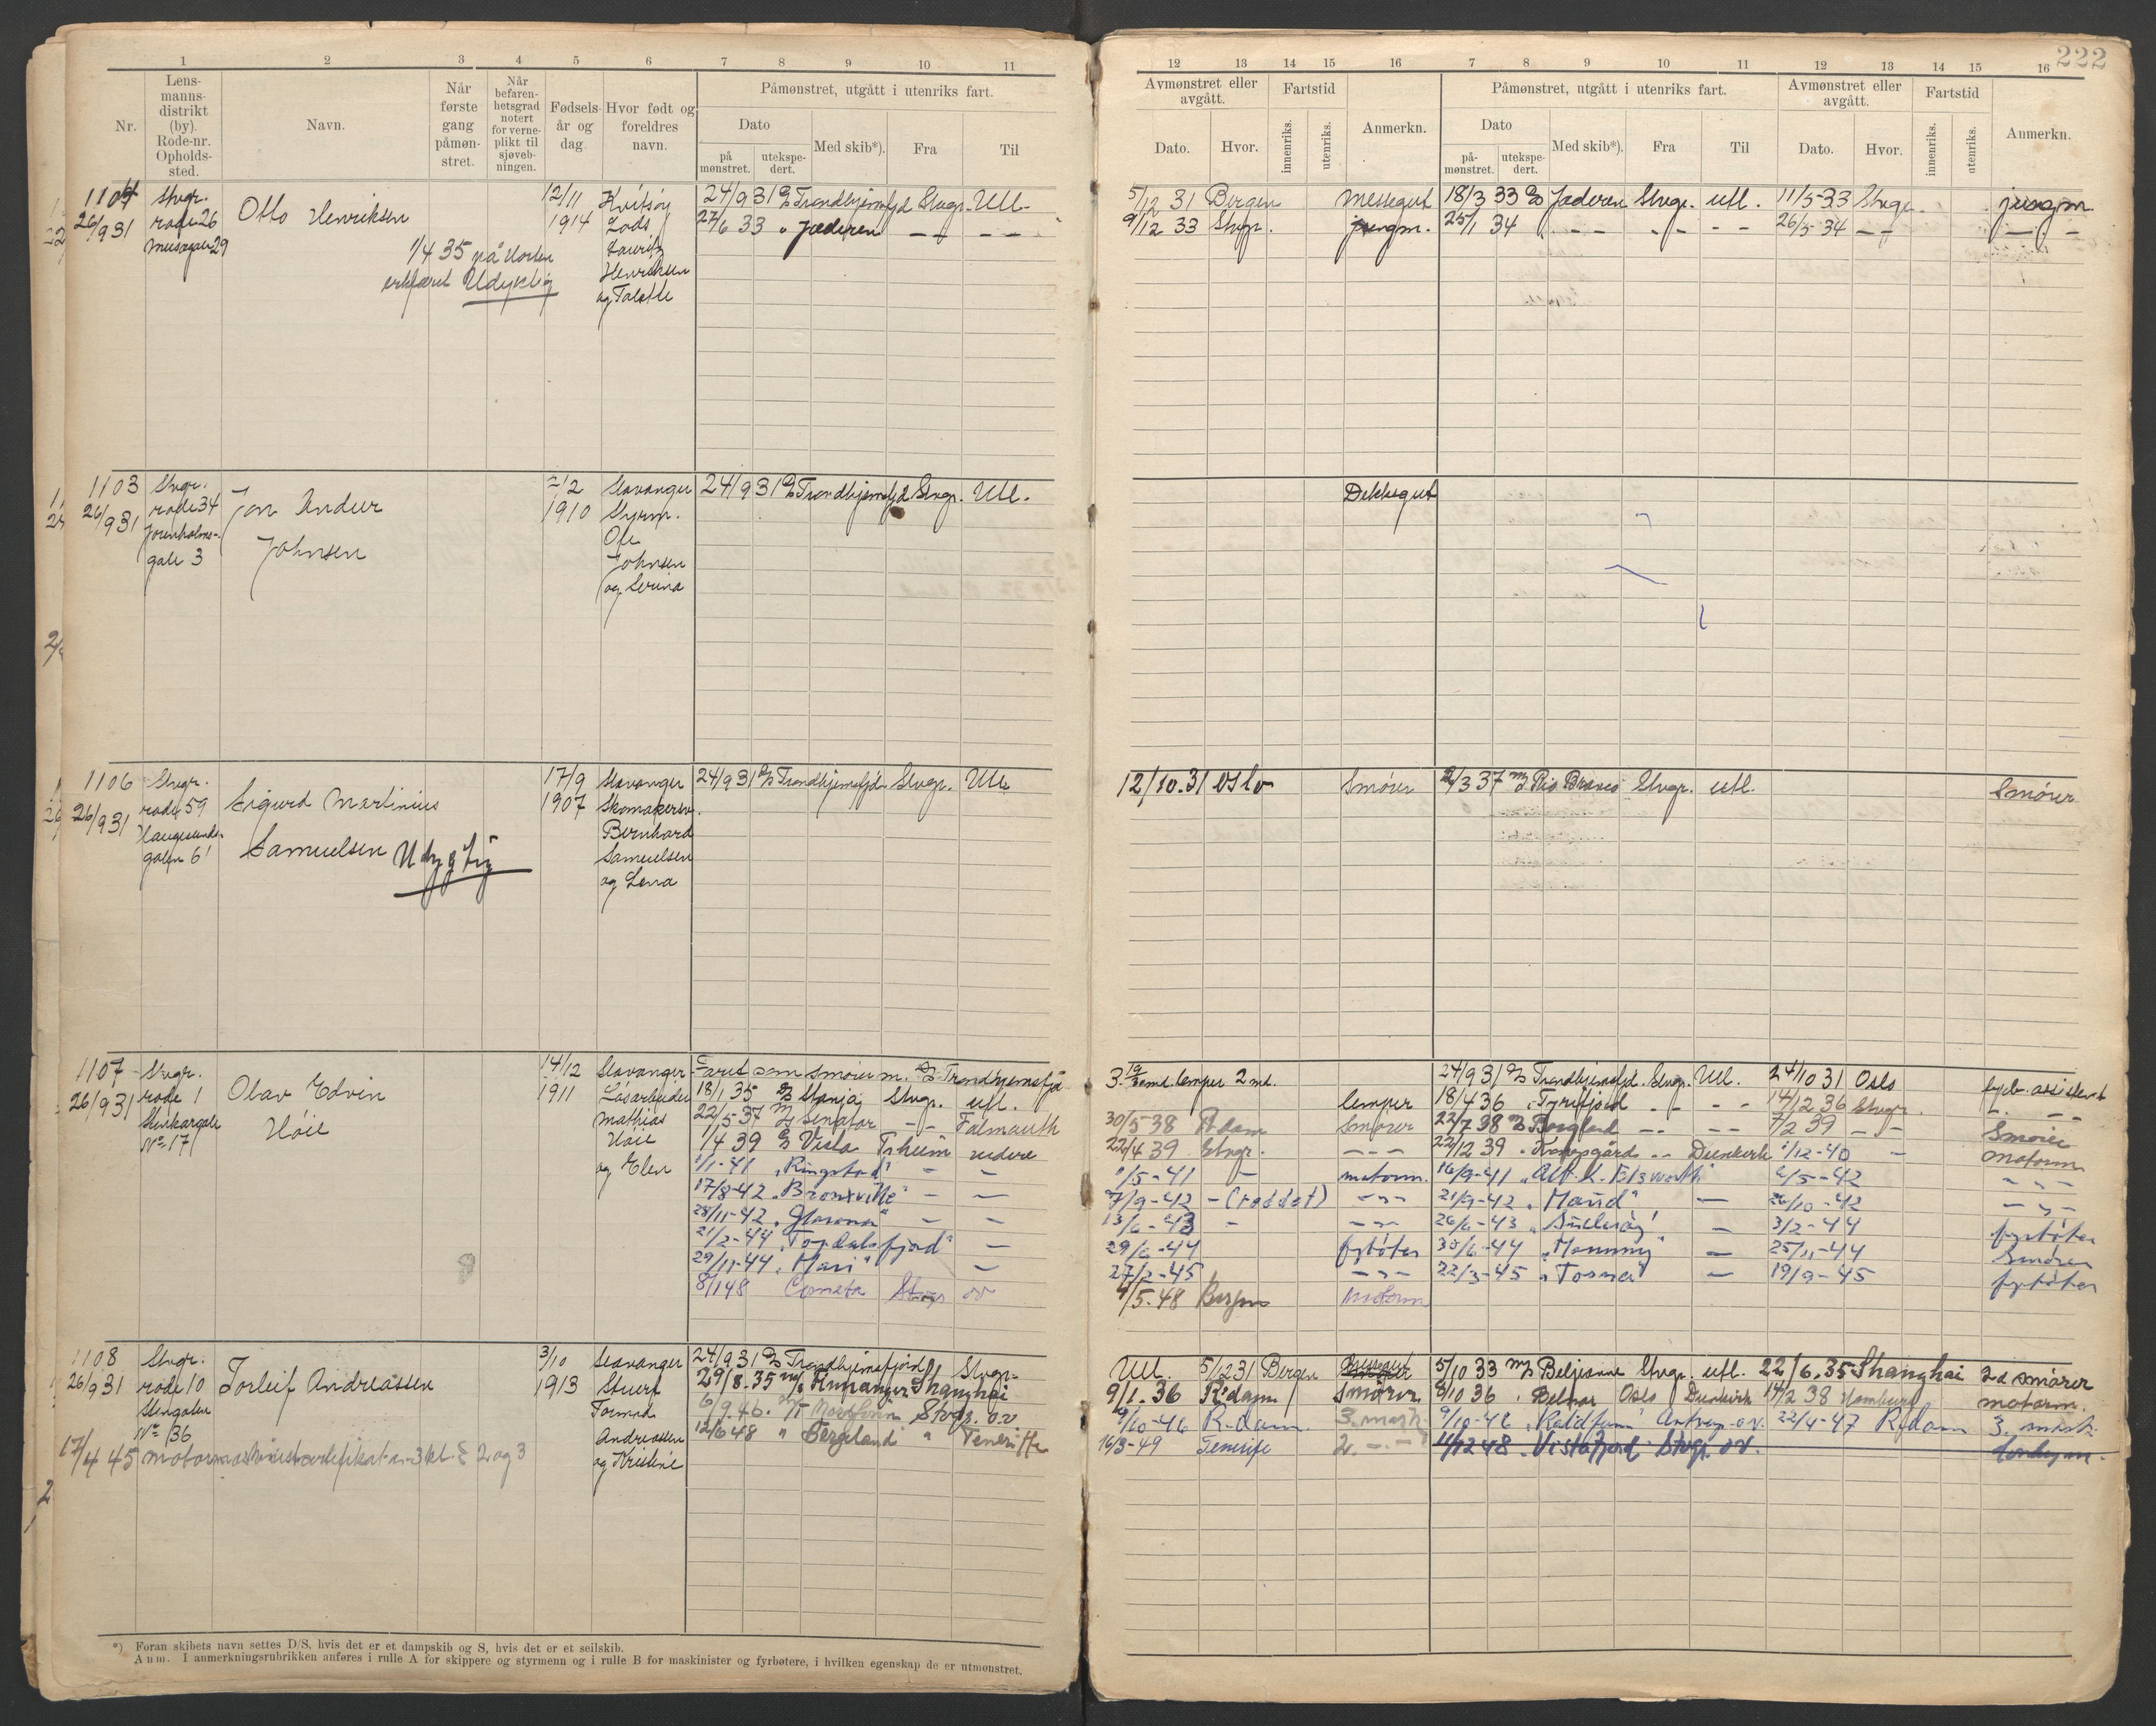 222
1 2 3 4 5 6 7 8 9 10 11
Nr.
Lens-
manns-
distrikt
(by).
Rode-nr.
Opholds-
sted.
Navn.
Når
første
gang
påmøn-
stret.
Når
befaren-
hetsgrad
notert
for verne-
plikt til
sjøveb-
ningen.
Fødsels-
år og
dag
Hvor født og
foreldres
navn.
Påmønstret, utgått i utenriks fart.
Dato
på
mønstret.
utekspe-
dert.
Med skib*).
Fra
Til
12 13 14 15 16 7 8 9 10 11 12 13 14 15 16
Avmønstret eller
avgått.
Dato.
Hvor.
Fartstid
innenriks.
utenriks.
Anmerkn.
Påmønstret, utgått i utenriks fart.
Dato
på-
mønstret.
utekspe-
dert.
Med skib*).
Fra
Til
Avmønstret eller
avgått.
Dato.
Hvor.
Fartstid
innenriks.
utenriks.
Anmerkn.
26/9 31
Stvgr.
rode 26
Otto Henriksen
1/4 35 på Horten
erklæret Udyktig
12/11
1914
Kvitsøy
Lods
Lauritz
Henriksen
24/9 31 D/S Trondhjemsfjd Stvgr. Utl.
27/6 33 " Jæderen — — — —
5/12 31 Bergen Messegut 18/3 33 D/S Jæderen Stvgr. utl. 11/5-33 Stvgr. jungm.
9/12 33 Stvgr. jungm. 25/1 34 — — — — — — 26/5-34 — — — —
1103
26/9 31
Stvgr.
rode 34
gate 3
Johnsen
2/2
1910
Stavanger
Styrm.
Ole
Johnsen
og Serina
24/9 31 D/S Trondhjemsfjd Stvgr. Utl.
Dekksgut
1106
26/9 31
Stvgr.
rode 59
Haugesunds-
gaten 61
Sigurd Martinius
Samuelsen Udygtig
17/9
1907
Stavanger
Skomakersv.
Bernhard
Samuelsen
og Lena
24/9 31 D/S Trondhjemsfjd Stvgr. Utl.
12/10.31 Oslo Smører 2/3 37 M/S Rio Bravo Stvgr. utl. Smører
1107
26/9 31
Stvgr.
rode 1
Styrkargate
No 17
Olav Edvin
Høie
14/12
1911
Stavanger
Løsarbeider
Mathias
Høie
og Elen
Faret som smører m. D/S Trondhjemsfjd
18/1 35 D/S Stanja Stvgr. utl.
22/5 37 M/S Senator — — Falmouth
1/4 39 D/S Visla Trheim videre
1/1-41 "Ringstad" — —
17/8-42 "Bronxville" — —
28/11-42 "Glarona" — —
21/2-44 "Topdalsfjord" —
29/11-44 "Mari" —
8/1 48 Cometa Stvgr ov
lemper 2 md. 24/9 31 D/S Trondhjemsfjd. Stvgr. Utl. 24/10 31 Oslo fyrb. assistent
lemper 18/4 36 " Tyrifjord — — — — 14/12 36 Stvgr.
30/5-38 Adam Smører 22/7 38 D/S Borgland — — — — 7/2 39 — — Smører
22/4 39 Stvgr. — — — 22/12 39 " Korsgård — — Dunkerk 1/12-40 — motorm
1/5-41 — motorm. 16/9-41 "Alf. L. Elsworth" 4/5-42 — " —
7/9-42 — (reddet) — " — 21/9-42 "Maud" — 26/10-42 — " —
13/6-43 — — " — 26/6-43 — 3/2-44 fyrbøter
29/6-44 fyrbøter 30/6-44 — 25/11-44 Smører
27/2-45 — " — 22/3-45 "Tosca" — 19/9-45 fyrbøter
4/5.48 Bergen Motorm
1108
26/9 31
Stvgr.
rode 10
Stengaten
No 36
Torleif Andreassen
17/4 45 motormaskinistsertifikat av 3 kl. E 2 og 3
3/10
1913
Stavanger
Stuert
Tormod
Andreassen
og Kristine
24/9 31 D/S Trondhjemsfjord Stvgr.
29/8.35 M/S Annanger Shanghai
6/9.46. Stvgr. o.v
12/6 48 " Bergeland " Teneriffe
Utl. 5/12 31 Bergen 5/10 33 M/S Beljeanne Stvgr. utl. 22/6.35 Shanghai 2d smører
9/1.36 R'dam Smører 8/10 36 . Belnor Oslo Dunkirk 14/2 38 Hamburg motorm.
9/10-46 R-dam 3. mask. 9/10-46 "Kaldfonn" Antverp. o.v. 22/4-47 R.dam 3. mask
16/3-49 Tenerife 2. — " — 11/12 48 . Vistafjord Stvgr. ov.
*) Foran skibets navn settes D/S, hvis det er et dampskib og S, hvis det er et seilskib.
Anm. I anmerkningsrubrikken anføres i rulle A for skippere og styrmenn og i rulle B for maskinister og fyrbøtere, i hvilken egenskap de er utmønstret.